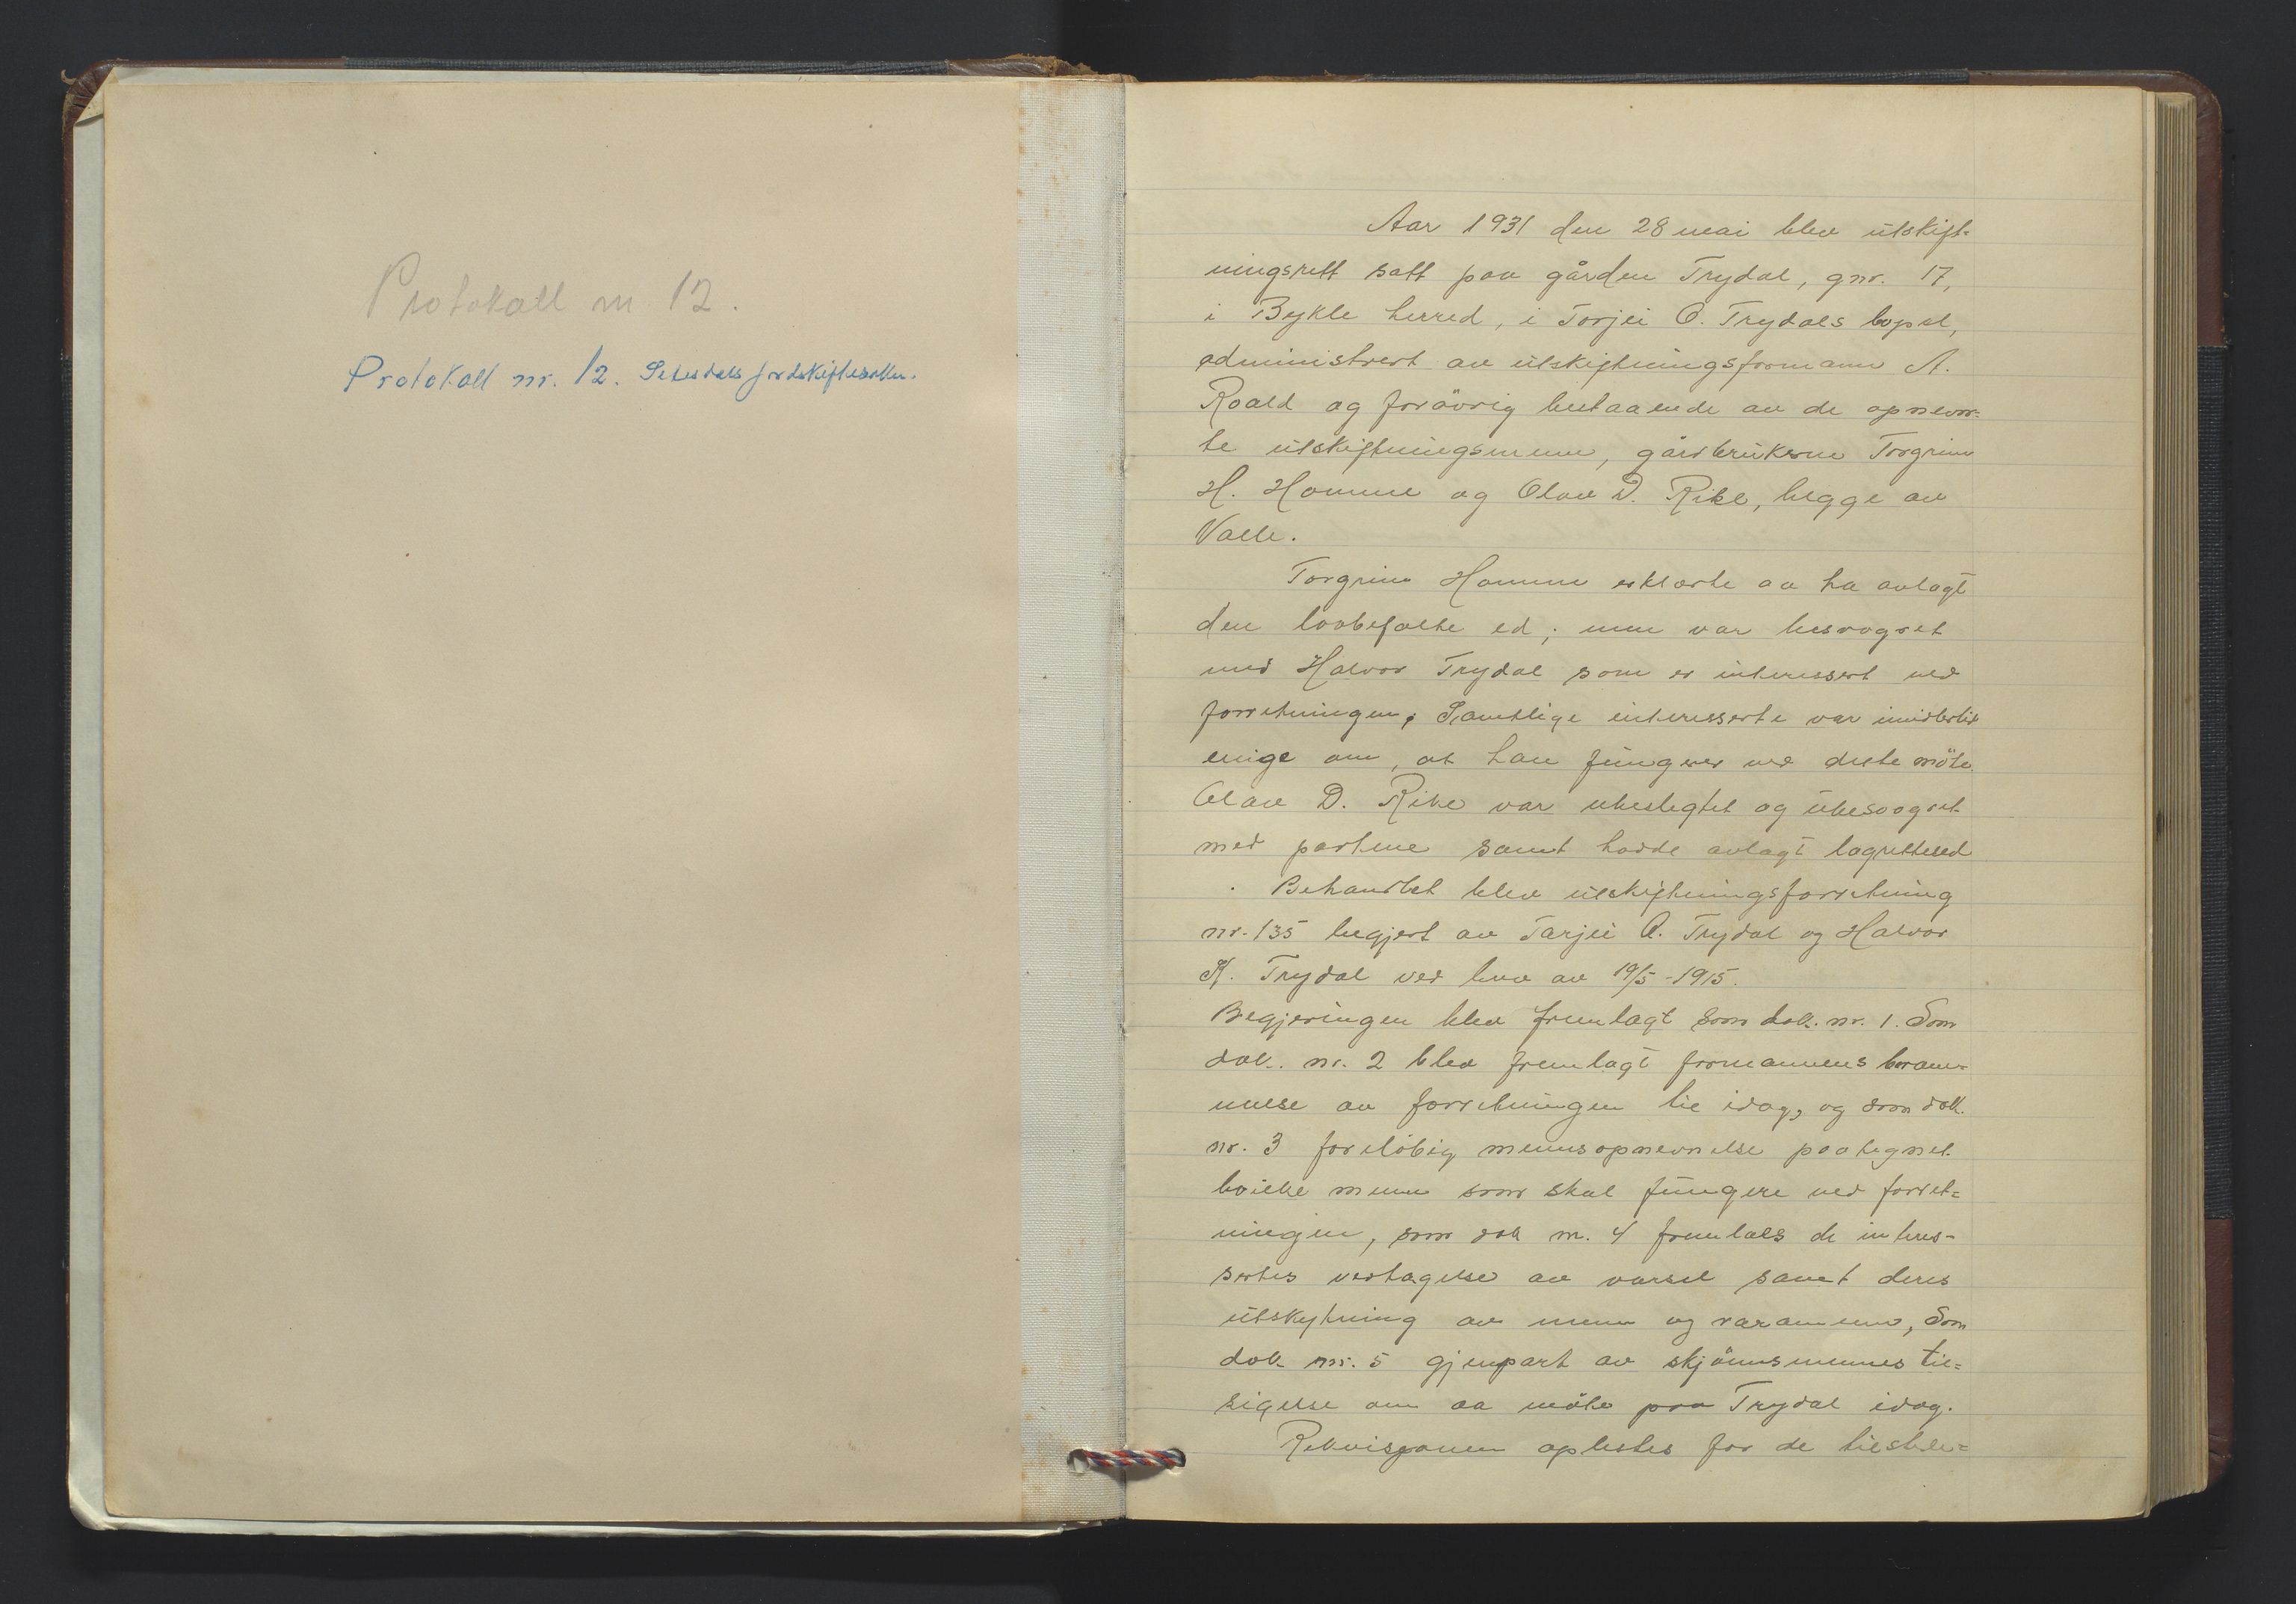 Protokoll nr 12.
Protokoll nr. 12. Setesdals jordskiftesokn.
Aar 1931 den 28 mai blev utskift-
ningsrett satt paa gården Trydal, gnr. 17,
i Bykle herred, i Torjei O. Trydals bopel,
administrert av utskiftningsformann A.
Roald og forövrig bestaaende av de opnevn-
te utskiftningsmenn, gårdbrukerne Torgrim
H. Homme og Olav D. Rike, begge av
Valle.
Torgrim Homme erklærte aa ha avlagt
den lovbefalte ed; men var besvogret
med Halvor Trydal som er interessert ved
forretningen. Samtlige interesserte var imidlertid
enige om, at han fungerer ved dette möte.
Olav D. Rike var ubeslegtet og ubesvogret
med partene samt hadde avlagt lagretteed
Behandlet blev utskiftningsforretning
nr. 135 begjert av Tarjei O. Trydal og Halvor
K. Trydal ved brev av 19/5-1915.
Begjeringen blev fremlagt som dok. nr. 1. Som
dok. nr. 2 blev fremlagt formannens beram-
melse av forretningen til idag, og som dok.
nr. 3 forelöbig mennsopnevnelse paategnet
hvilke menn som skal fungere ved forret-
ningen, som dok nr. 4 fremlaes de interes-
sertes vedtagelse av varsel samt deres
utskytning av menn og varamenn, Som
dok nr. 5 gjenpart av skjönnsmennes til-
sigelse om aa möte paa Trydal idag.
Rekvisjonen oplestes for de tilstede-